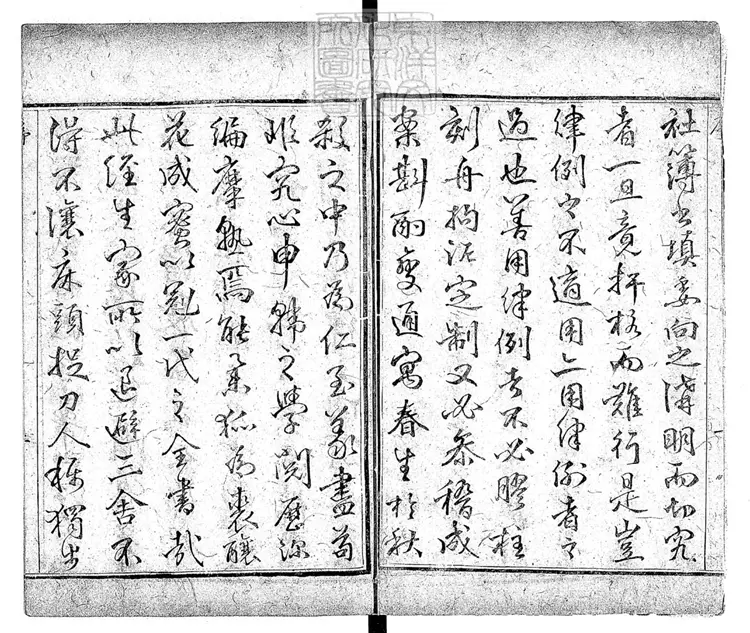 社簿書填委向之講明而切究
者一旦竟扞格而難行是豈
律例之不適用亦用律例者之
過也善用律例者不必膠柱
刻舟拘泥定制又必參稽成
案斟酌變通寓春生於秋
殺之中乃為仁至義盡苟
非究心申韓之學閱歷深
編摩熟焉能集狐為裘釀
花成蜜以冠一代之全書哉
此經生家所以退避三舍不
得不讓麻頭捉刀人稱獨步